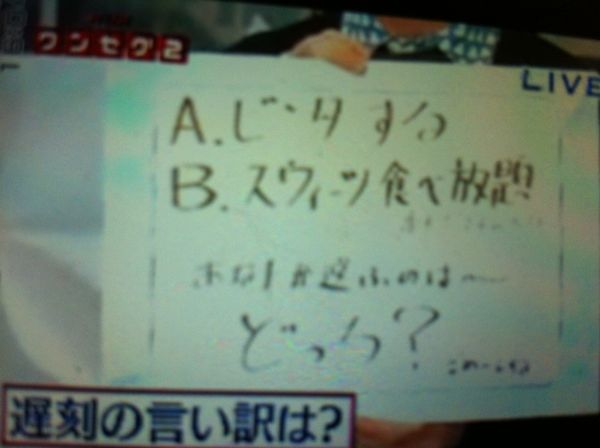 ワンセグ2
LIVE
A. する
B. スウィーツ食べ放題
あなたが選ぶのは〜
どっち?
遅刻の言い訳は?